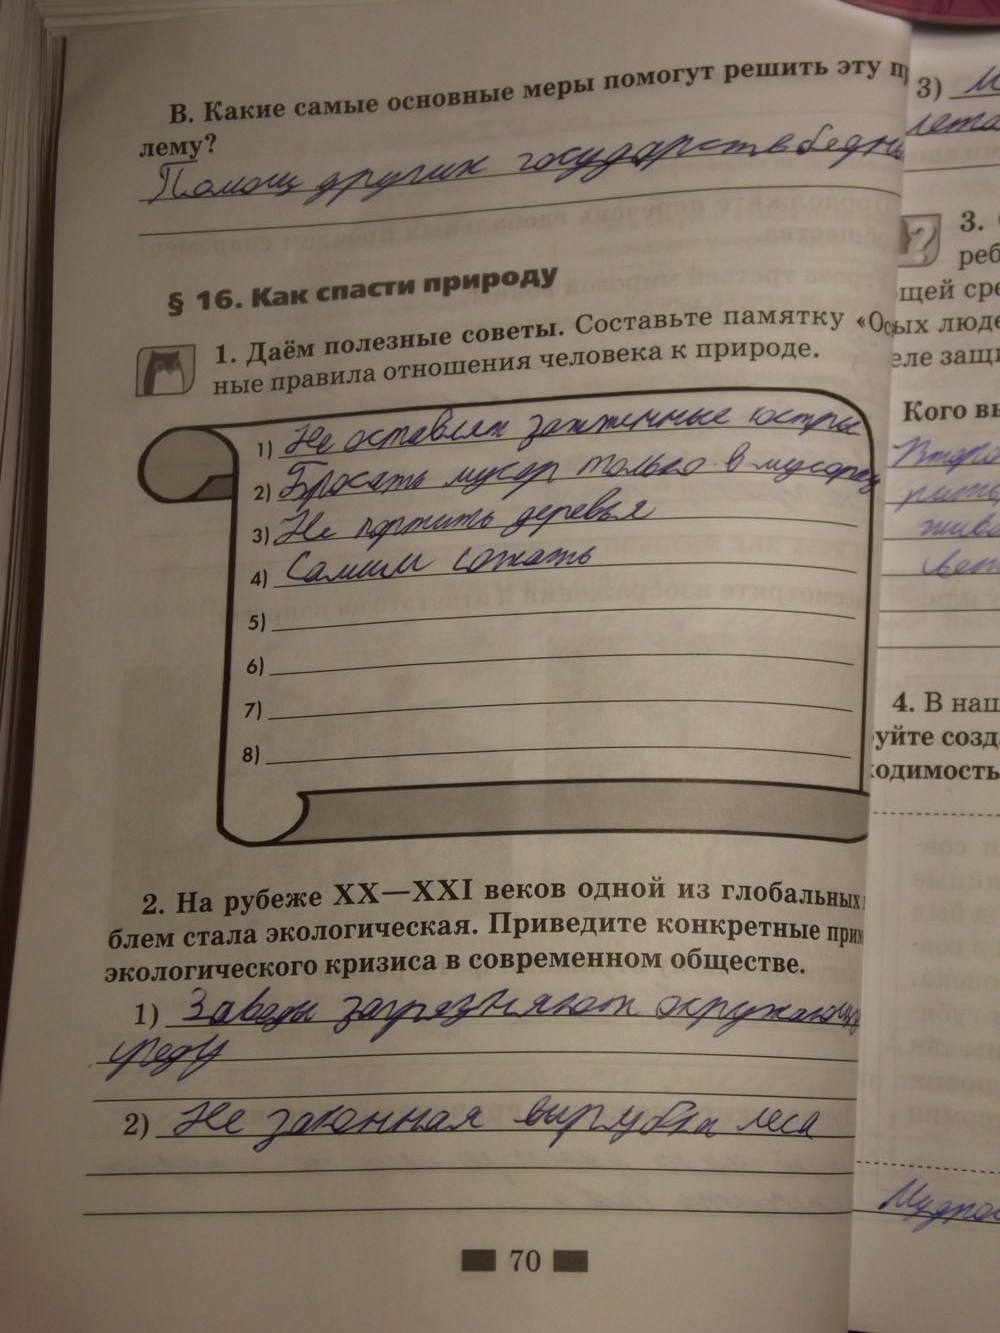 В. Какие самые основные меры помогут решить эту п
лему?
Помощ других государств бедн
§ 16. Как спасти природу
1. Даём полезные советы. Составьте памятку «Ос
ные правила отношения человека к природе.
1) Не оставлят зажженные костры
2) Бросать мусор только в мусорку
3) Не портить деревья
4) Самим сажать
5)
6)
7)
8)
2. На рубеже XX—XXI веков одной из глобальных
блем стала экологическая. Приведите конкретные прим
экологического кризиса в современном обществе.
1) Заводы загрязняют окружающую
среду
2) Не законная вырубка леса
70
3)
3.
реб
щей сре
ых люде
еле защи
Кого вы
4. В наш
уйте созд
ходимость